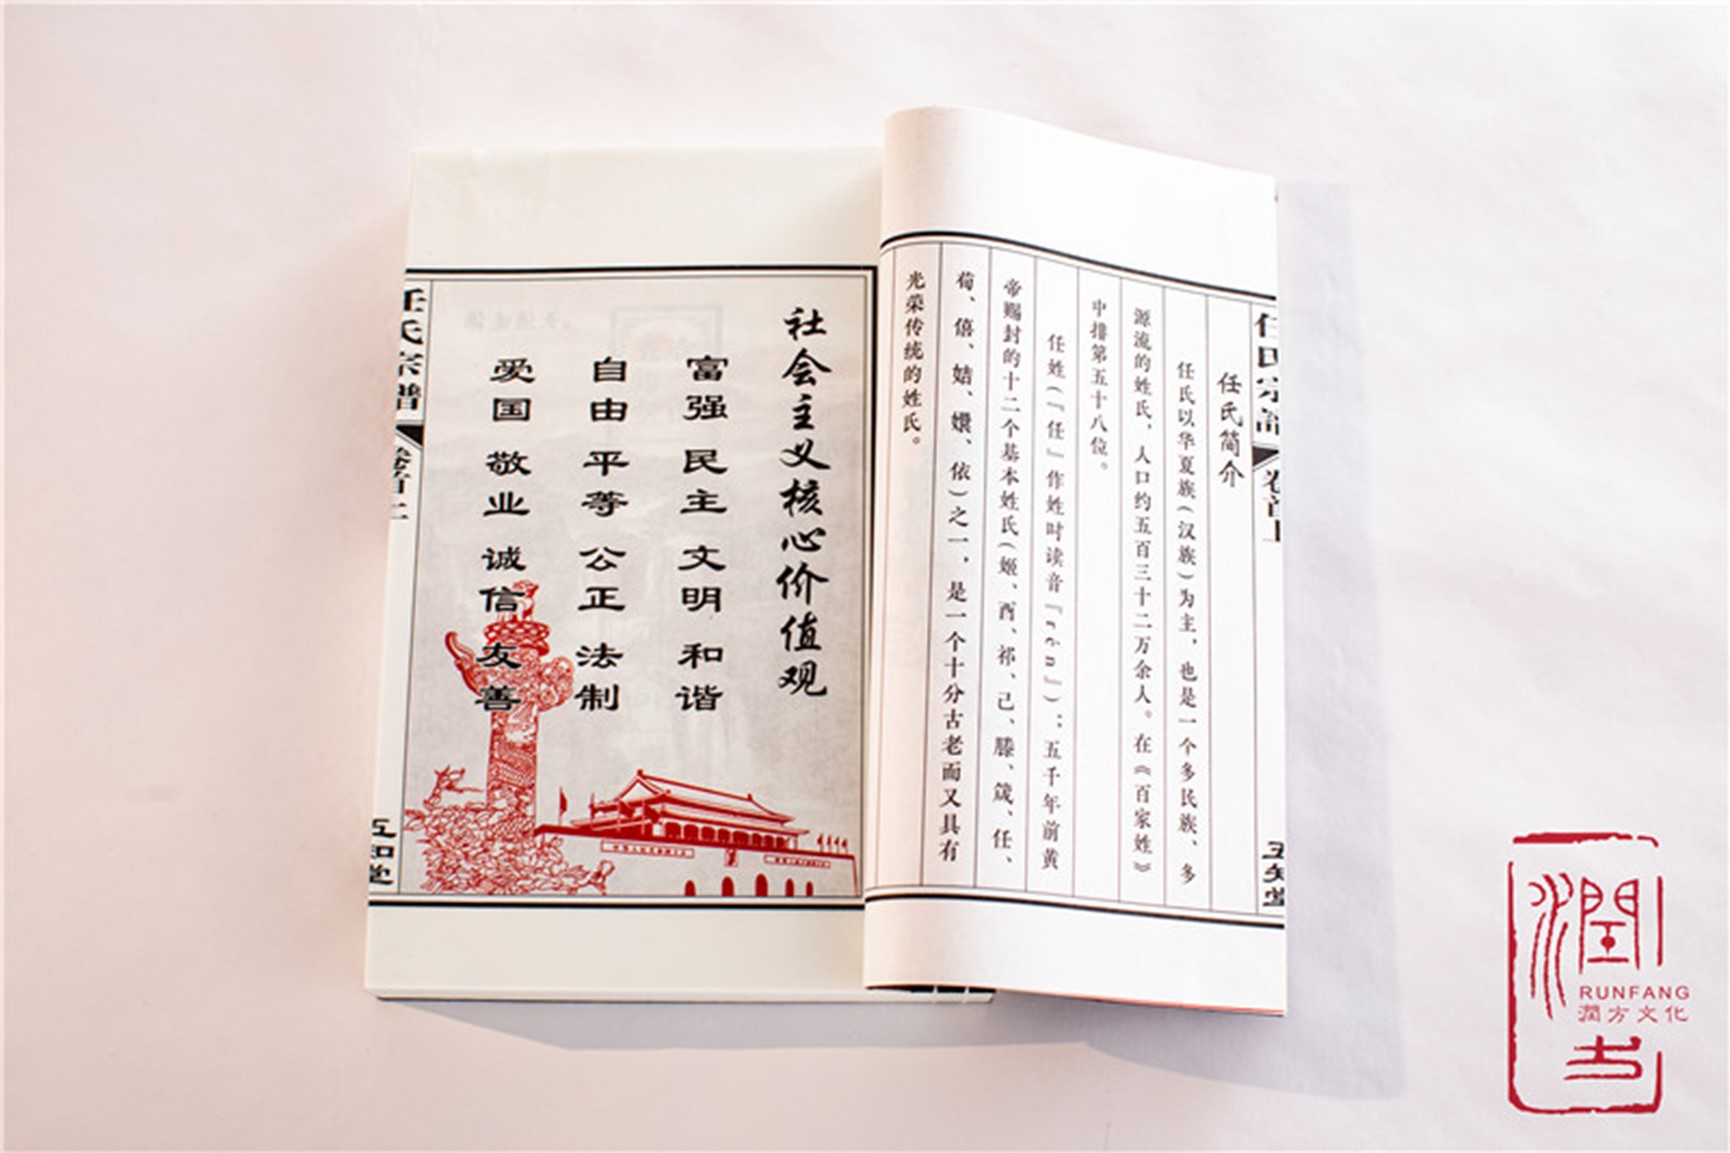 任氏简介
任氏以华夏族(汉族)为主，也是一个多民族、多
源流的姓氏，人口约五百三十二万余人。在《百家姓》
中排第五十八位。
任姓(『任』作姓时读音『rén』)：五千年前黄
帝赐封的十二个基本姓氏(姬、酉、祁、己、滕、箴、任、
荀、僖、姞、嬛、依)之一，是一个十分古老而又具有
光荣传统的姓氏。
社会主义核心价值观
富强 民主 文明 和谐
自由 平等 公正 法制
爱国 敬业 诚信 友善
任氏宗谱
五知堂
任氏宗谱
五知堂
潤
RUNFANG
潤方文化